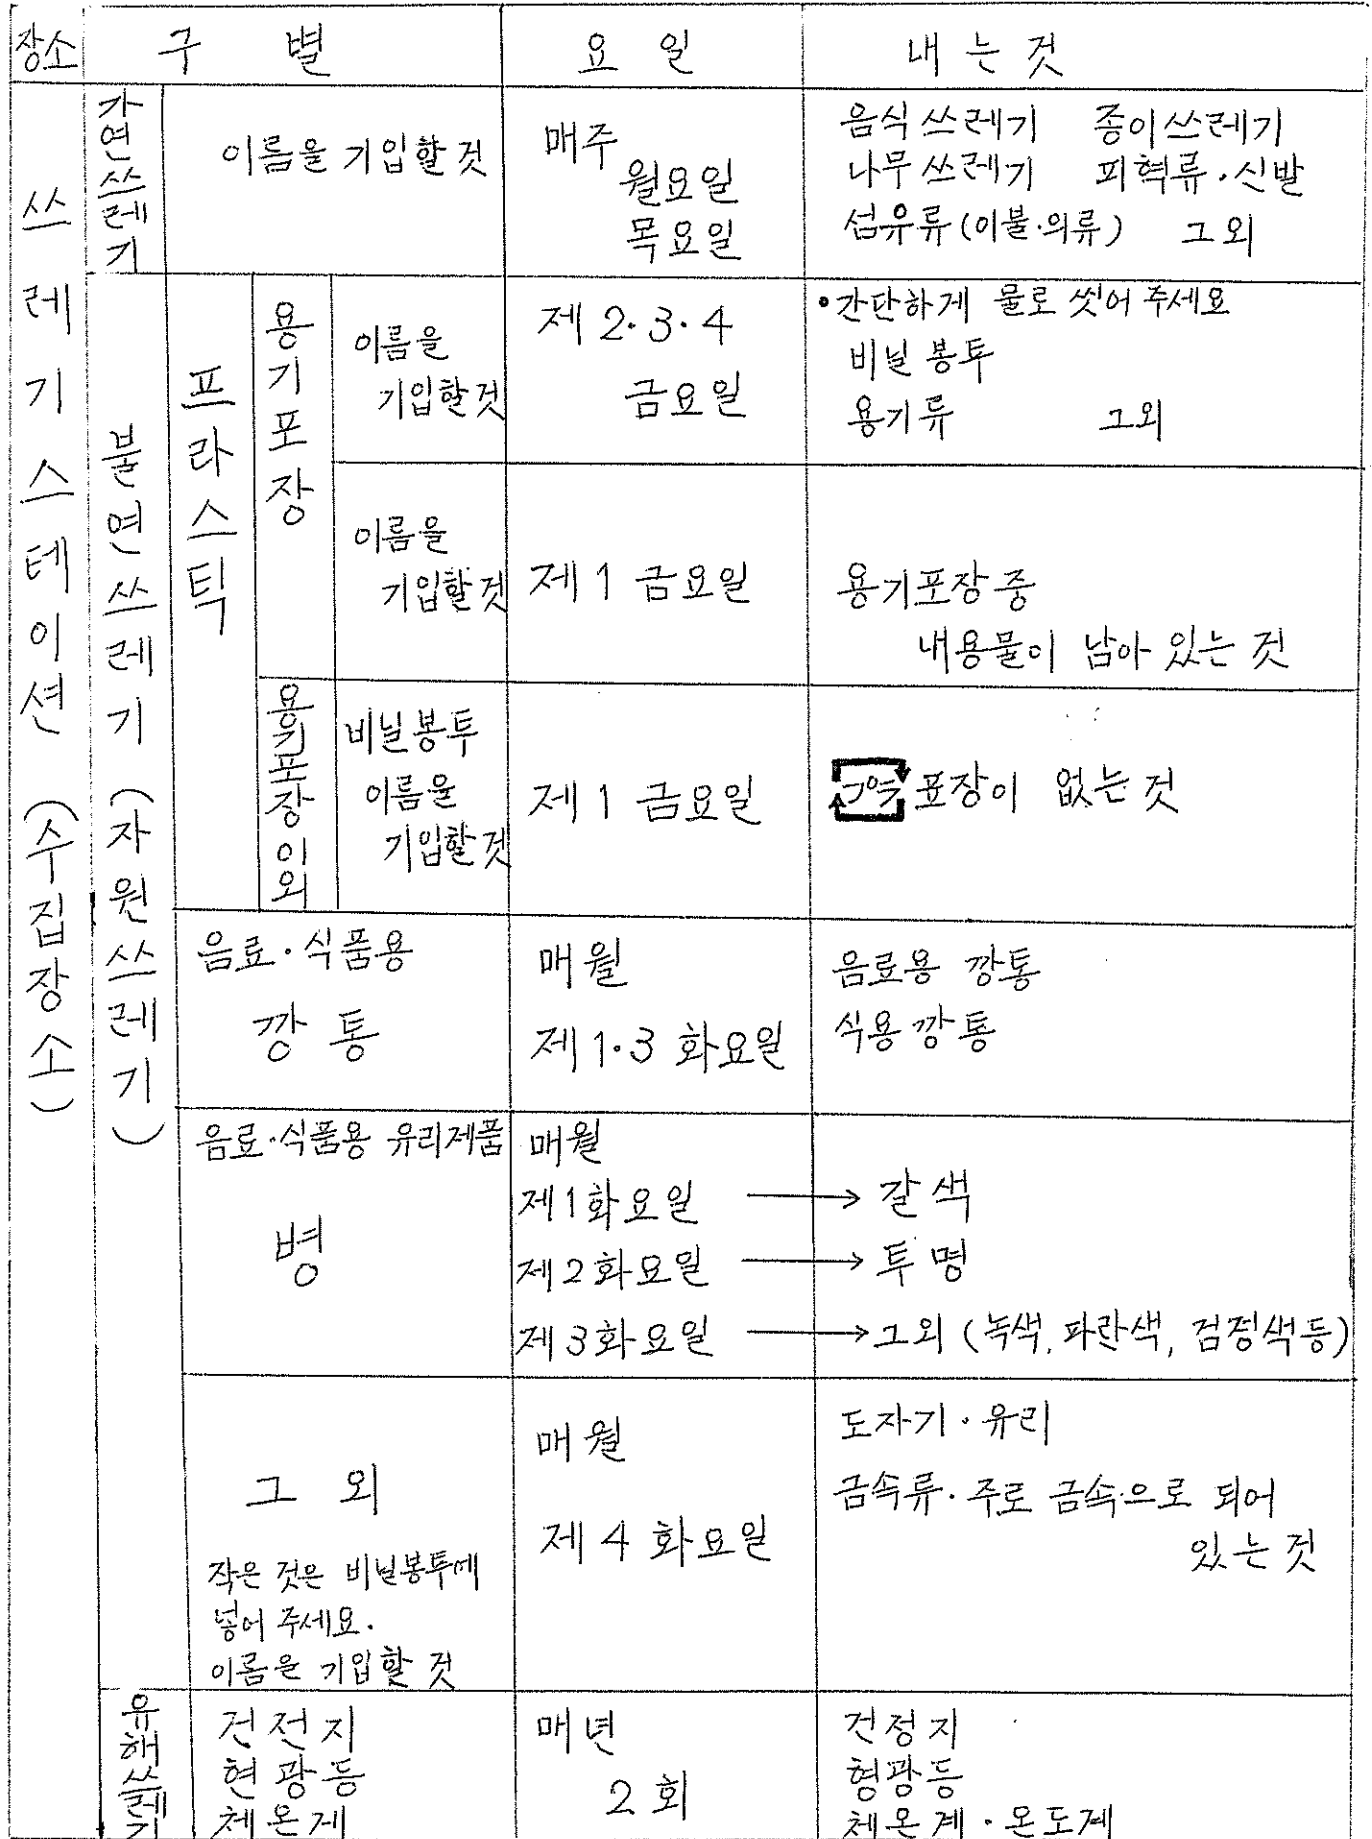 장소 구 별 요 일 내 는 것
쓰레기 스테이션 (수집장소)
가연쓰레기
이름을 기입할 것
매주
월요일
목요일
음식 쓰레기 종이쓰레기
나무 쓰레기 피혁류·신발
섬유류(이불·의류) 그외
불연쓰레기 (자원쓰레기)
프라스틱
용기포장
이름을
기입할것
제 2·3·4
금요일
•간단하게 물로 씻어 주세요
비닐 봉투
용기류 그외
이름을
기입할것
제 1 금요일
용기포장 중
내용물이 남아 있는 것
용기포장이외
비닐봉투
이름을
기입할것
제 1 금요일
표장이 없는 것
음료·식품용
깡 통
매월
제 1·3 화요일
음료용 깡통
식용 깡통
음료·식품용 유리제품
병
매월
제1화요일 → 갈색
제2화요일 → 투명
제3화요일 → 그외 (녹색, 파란색, 검정색등)
그 외
작은 것은 비닐봉투에
넣어 주세요.
이름을 기입할 것
매월
제 4 화요일
도자기·유리
금속류·주로 금속으로 되어
있는 것
유해쓰레기
건전지
현광등
체온계
매년
2회
건정지
형광등
체온계·온도계